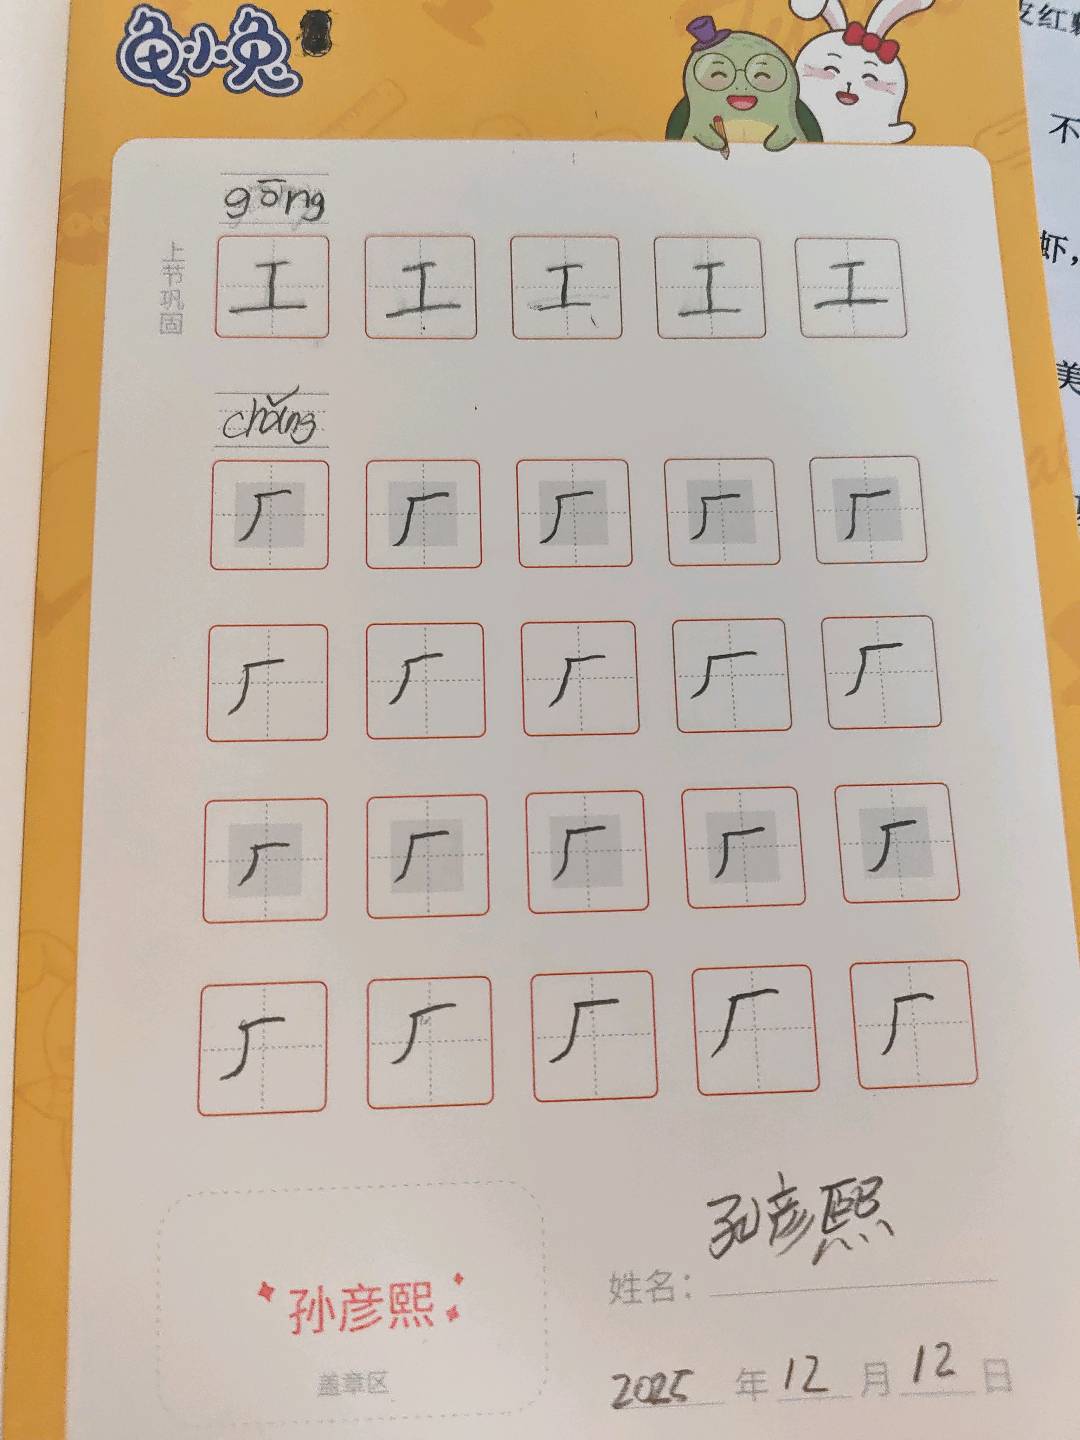 龟小兔
gōng
上节巩固
工 工 工 工 工
chǎng
厂 厂 厂 厂 厂
厂 厂 厂 厂 厂
厂 厂 厂 厂 厂
厂 厂 厂 厂 厂
孙彦熙
盖章区
孔彦熙
姓名：
2025 年 12 月 12 日
不
虾，
美